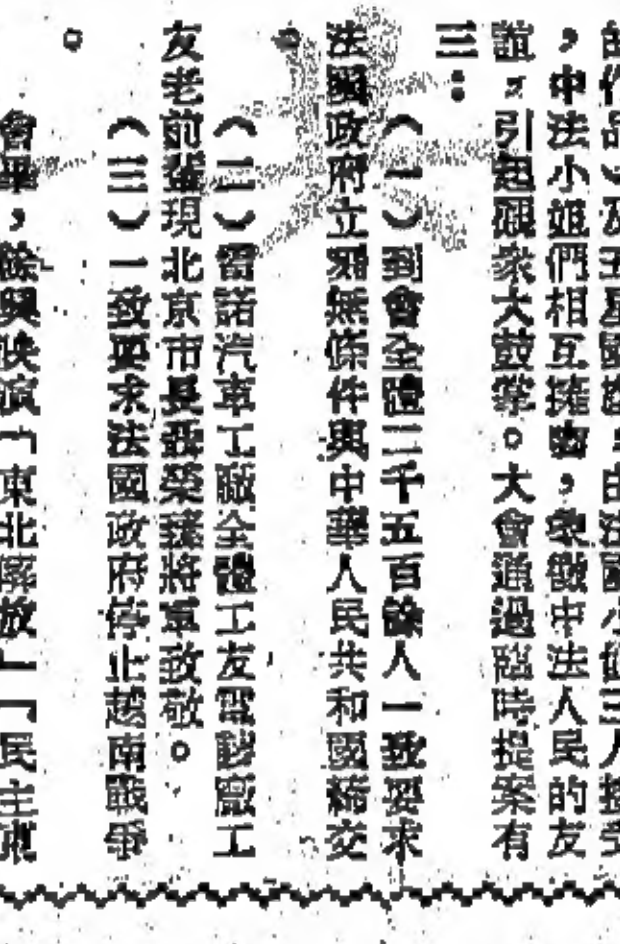 的作品)及五星國旗,由法國小姐三人接受
,中法小姐們相互擁吻,象徵中法人民的友
誼,引起觀衆大鼓掌。大會通過臨時提案有
三:
(一)到會全體三千五百餘人一致要求
法國政府立刻無條件與中華人民共和國締交
。
(二)雷諾汽車工職全體工友電該廠工
友老前輩現北京市長聶榮臻將軍致敬。
(三)一致要求法國政府停止越南戰爭
。
會畢,餘興映演「東北解放」「民主東